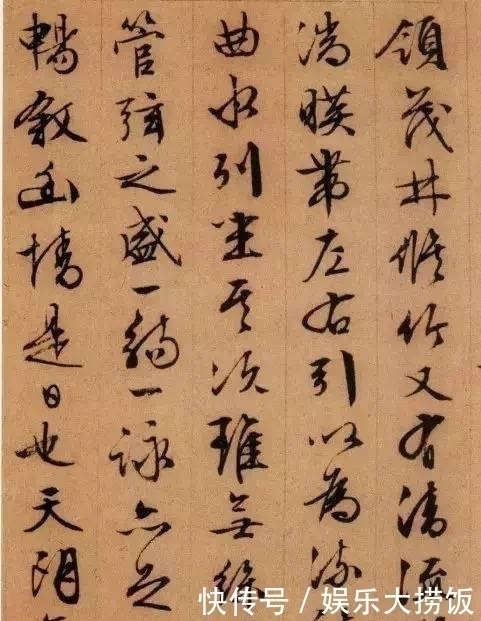 領茂林脩竹又有清流
湍暎帶左右引以為流
曲水列坐其次雖無絲
管弦之盛一觴一詠亦足
暢敘幽情是日也天朗
快传号 / 娱乐大捞饭